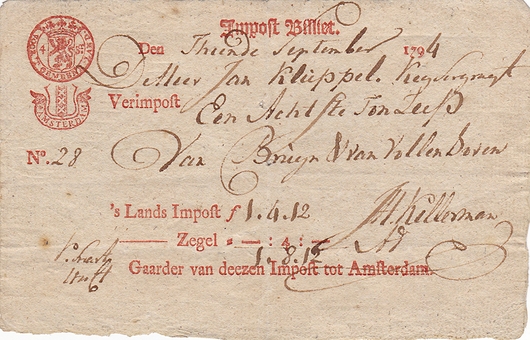 Impost Billiet.
Den Thiende September 1794
De Heer Jan Kluppel. Keysersgragt
Verimpost Een Achtste Ton Zeep
No. 28 Van Bruyn & van Vollenhoven
's Lands Impost f 1.4.12
JH Kellerman
Zegel - : 4 : -
1.8.12
Gaarder van deezen Impost tot Amsterdam.
AMSTERDAM